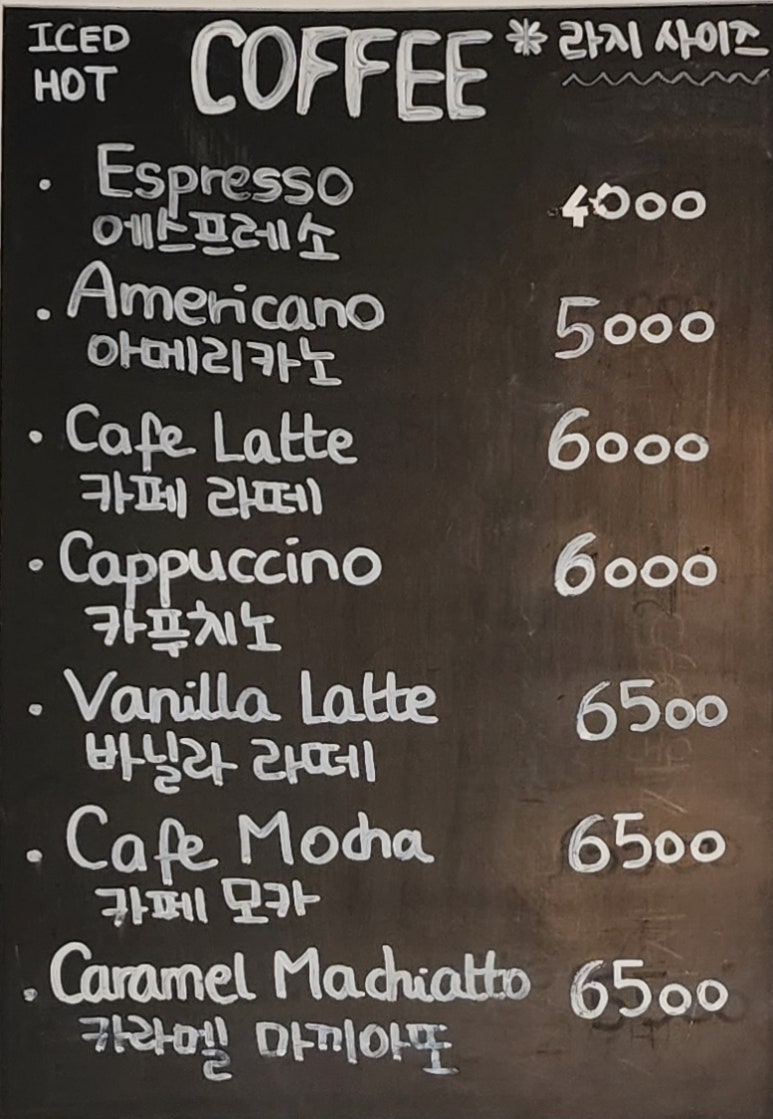 ICED
HOT
COFFEE
* 라지 사이즈
· Espresso 4000
에스프레소
· Americano 5000
아메리카노
· Cafe Latte 6000
카페 라떼
· Cappuccino 6000
카푸치노
· Vanilla Latte 6500
바닐라 라떼
· Cafe Mocha 6500
카페 모카
· Caramel Machiatto 6500
카라멜 마끼아또